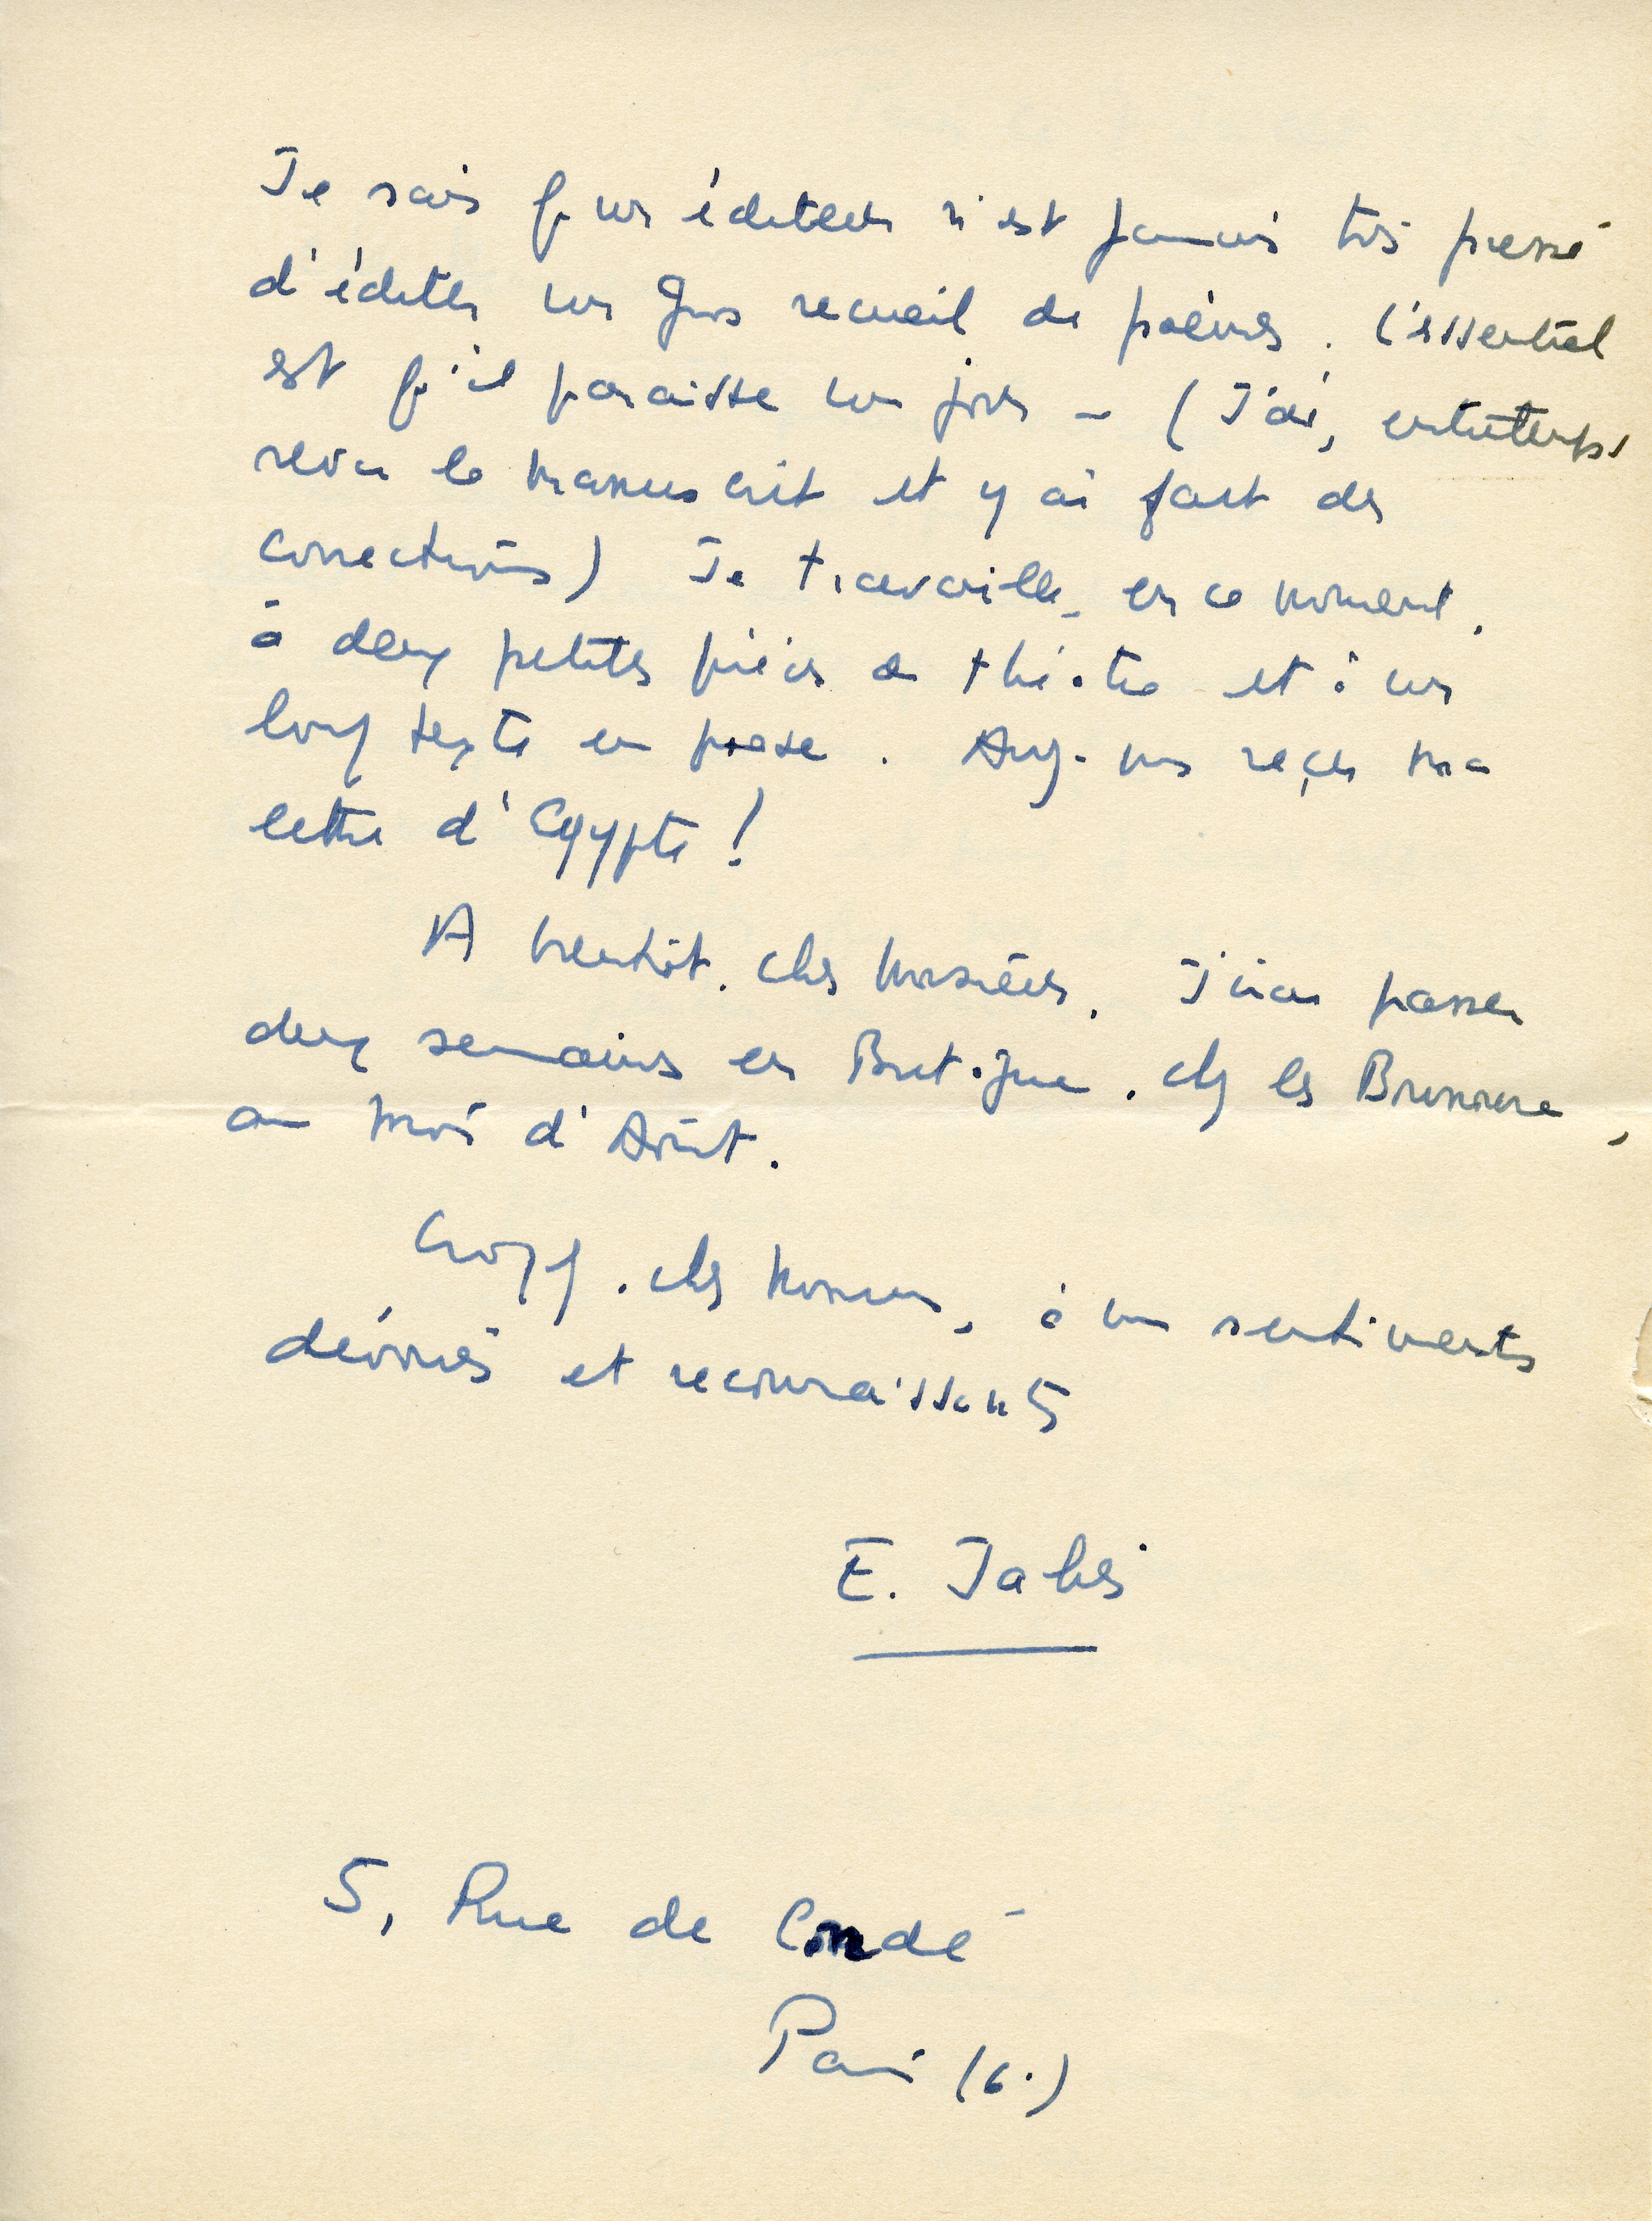 Je sais qu'un éditeur n'est jamais très pressé
d'éditer un gros recueil de poèmes. L'essentiel
est qu'il paraisse un jour – (J'ai, entretemps
revu le manuscrit et y ai fait des
corrections) Je travaille, en ce moment,
à deux petites pièces de théâtre et à un
long texte en prose. Avez-vous reçu ma
lettre d'Egypte!
A bientôt, cher Monsieur, J'irai passer
deux semaines en Bretagne, chez les
au mois d'Août.
Croyez, cher Monsieur, à mes sentiments
dévoués et reconnaissants
E. Jabès
5, Rue de Condé
Paris (6e)